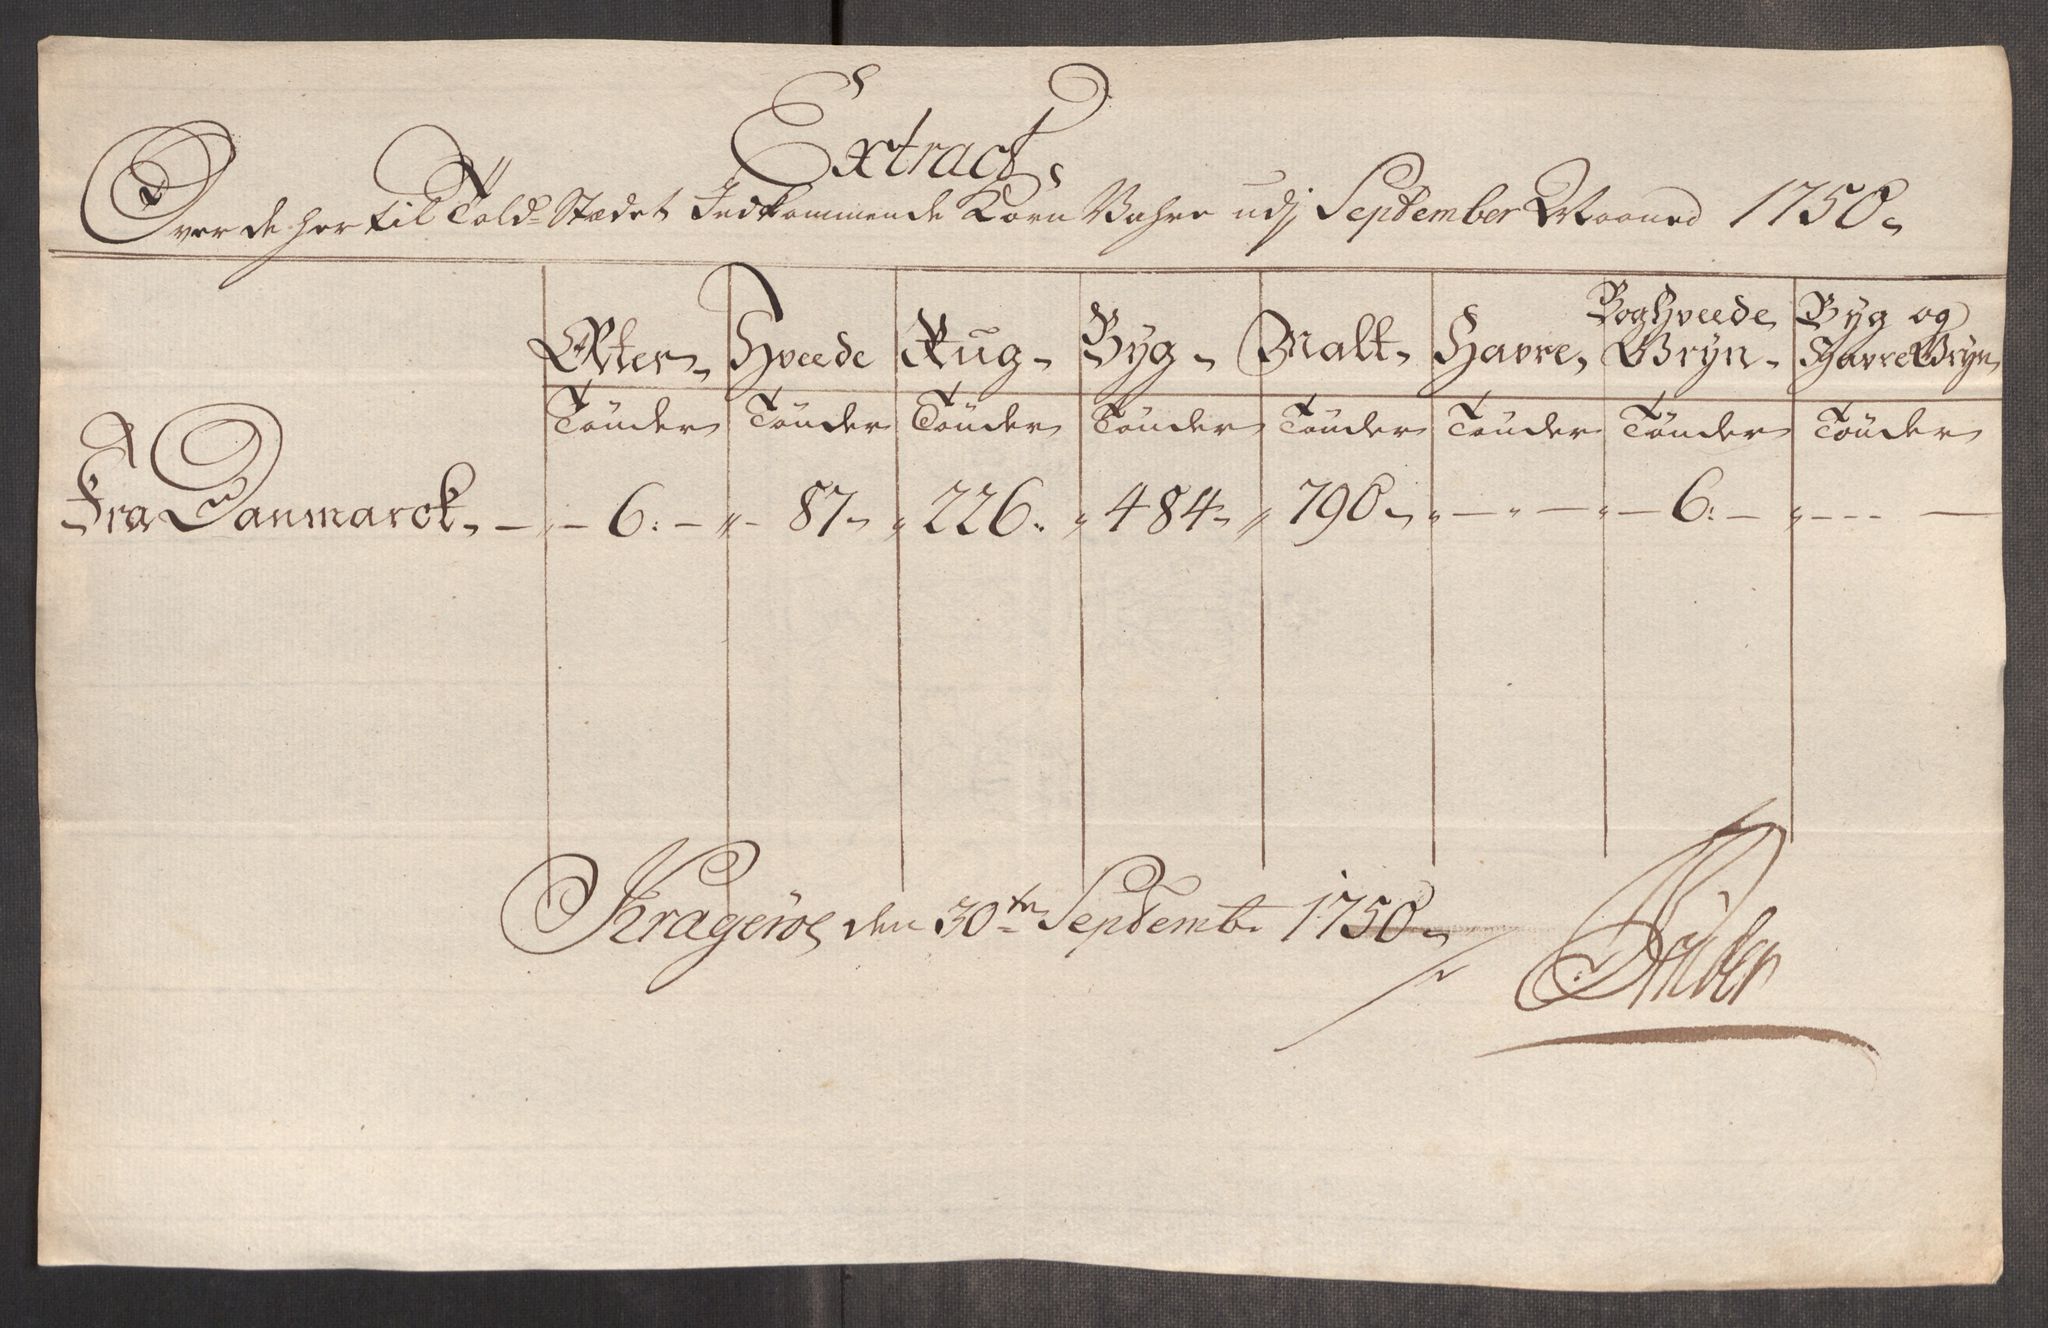 Extract
Over de her til Told-Stædet Indkommende Korn Vahre udj September Maaned 1750.
Erter Hveede Rug Byg Malt Havre Boghveede Gryn Byg og Havre Gryn
Tönder Tönder Tönder Tönder Tönder Tönder Tönder Tönder
Fra Danmarck 6. 87 226. 484 790 — 6. —
Krageröe den 30te Septemb. 1750